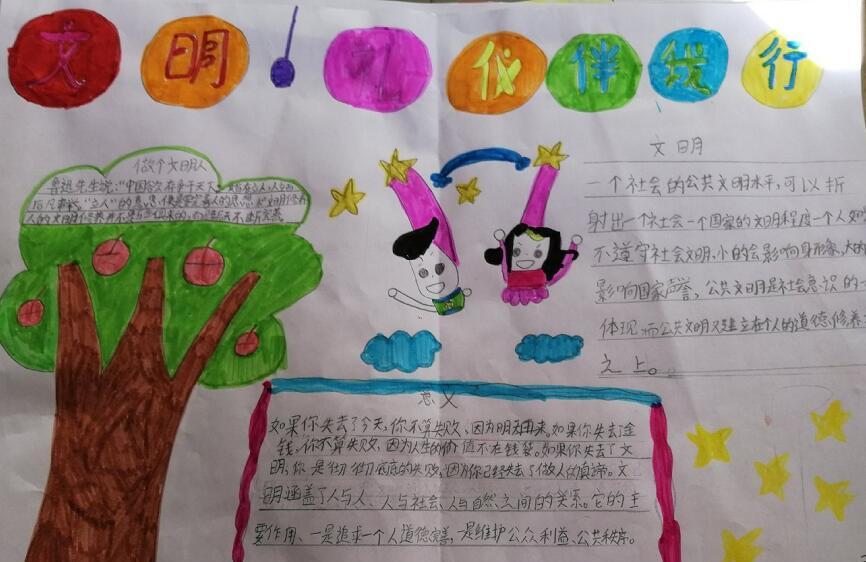 文明!礼仪伴我行
做个文明人
鲁迅先生说:"中国欲存争于天下,其首在立人,人立而
后凡事举。"立人"的意思
文明
一个社会的公共文明水平,可以折
射出一个社会一个国家的文明程度一个人如
不遵守社会文明,小的会影响身形象,大的
影响国家声誉,公共文明是社会意识的一
体现,而公共文明又建立在个人的道德修养
之上。
意义
如果你失去了今天,你不算失败,因为明天再来。如果你失去了金
钱,你不算失败,因为人生的价值不在钱袋。如果你失去了文
明,你是彻彻底底的失败,因为你已经失去了做人的真谛。文
明涵盖了人与人、人与社会、人与自然之间的关系。它的主
要作用、一是追求一个人道德完善,一是维护公众利益、公共秩序。